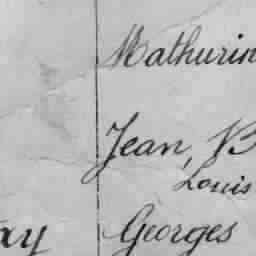 Mathurin
Jean, B
Louis
ay Georges